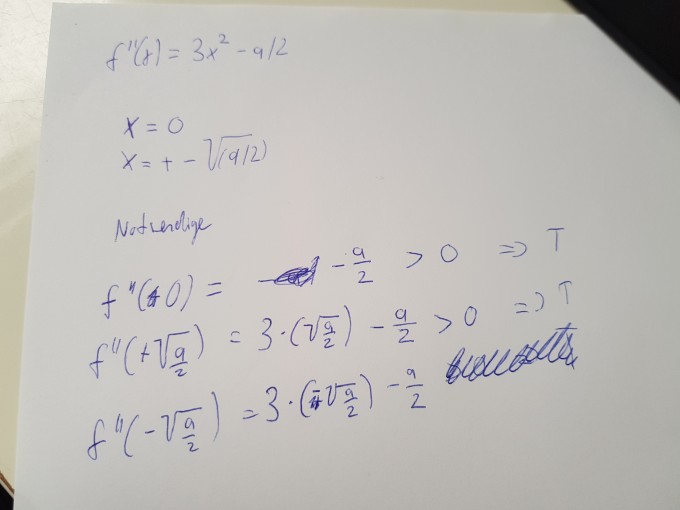 f''(x) = 3x² - a/2
x = 0
x = + - √(a/2)
Notwendige
f''(0) = - a/2 > 0 => T
f''(+√a/2) = 3·(√a/2) - a/2 > 0 => T
f''(-√a/2) = 3·(-√a/2) - a/2